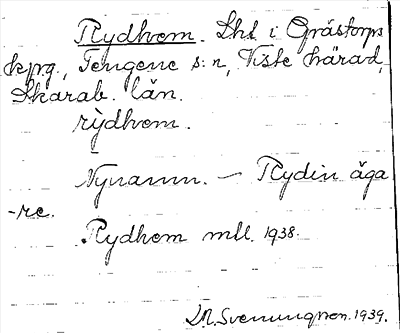 Rydhem. Lht i Grästorps
kprg., Tengene s:n, Viste härad,
Skarab. län.
rỳdhem.
Nynamn. — Rydin äga
-re.
Rydhem mll. 1938.
Svenungson. 1939.